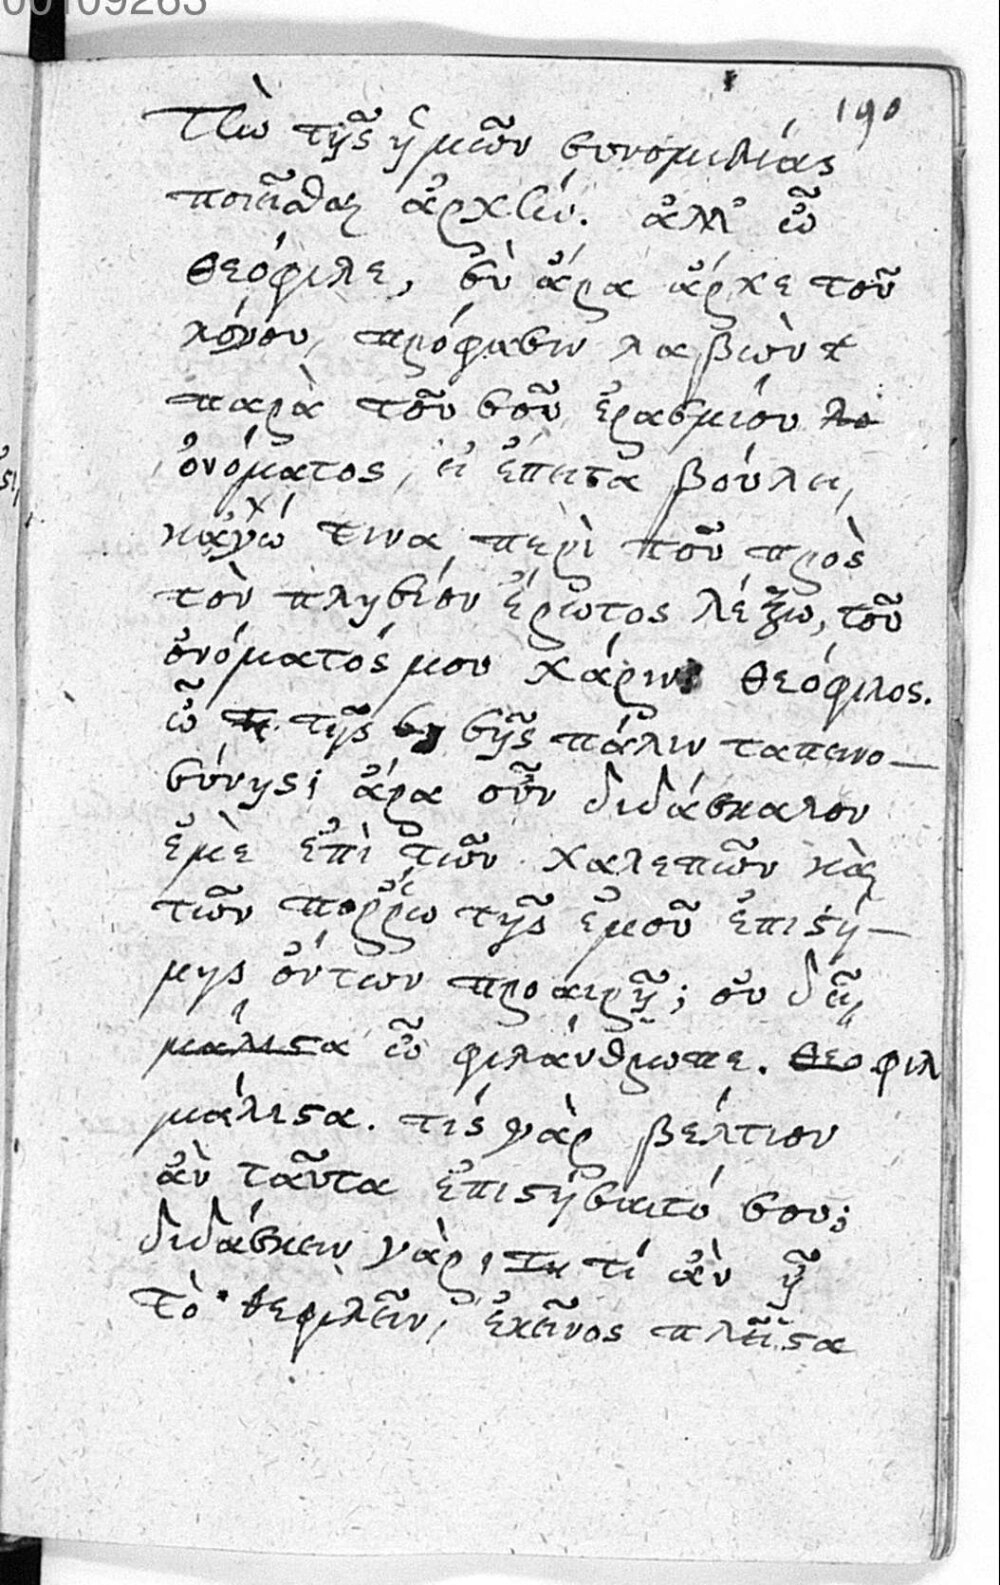 00109263
190
τὴν τῆς ἡμῶν συνομιλίας
ποιεῖσθαι ἀρχήν. ἀλλ' ὦ
Θεόφιλε, σὺ ἄρα ἄρχε τοῦ
λόγου, πρόφασιν λαβὼν
παρὰ τοῦ σοῦ ἐρασμίου
ὀνόματος, εἰ ἔπειτα βούλει,
κᾀγώ τινα περὶ τοῦ πρὸς
τὸν πλησίον ἔρωτος λέξω, τοῦ
ὀνόματός μου χάριν. Θεόφιλος.
ὦ τῆς σῆς πάλιν ταπεινο-
σύνης; ἄρα οὖν διδάσκαλον
ἐμὲ ἐπὶ τῶν χαλεπῶν καὶ
τῶν πόῤῥω τῆς ἐμοῦ ἐπιστή-
μης ὄντων προαιρῇ; οὐ δεῖ
μάλιστα ὦ φιλάνθρωπε. Θεο φιλ
μάλιστα. τίς γὰρ βέλτιον
ἂν ταῦτα ἐπιστήσαιτό σου;
διδάσκειν γὰρ, τί ἂν ᾖ
τὸ θεοφιλεῖν, ἐκεῖνος πλεῖστα